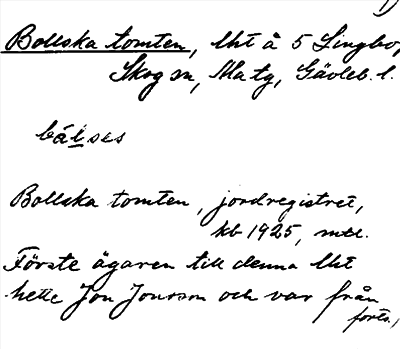 1)
Bollska tomten, lht å 5 Lingbo,
Skog sn, Ma tg, Gävleb. l.
bå̀l̠sες
Bollska tomten, jordregistret,
kb 1925, mtl.
Förste ägaren till denna lht
hette Jon Jonsson och var från
forts.,